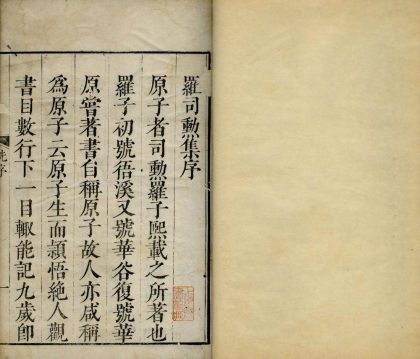 羅司勲集序
原子者司勲羅子熈載之所著也
羅子初號䓊溪又號華谷復號華
原嘗著書自稱原子故人亦咸稱
爲原子云原子生而頴悟絶人觀
書目數行下一目輙能記九歲卽
序
一